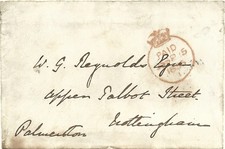 W. G. Reynolds Esqre
Upper Talbot Street
Nottingham
Palmerston
PAID